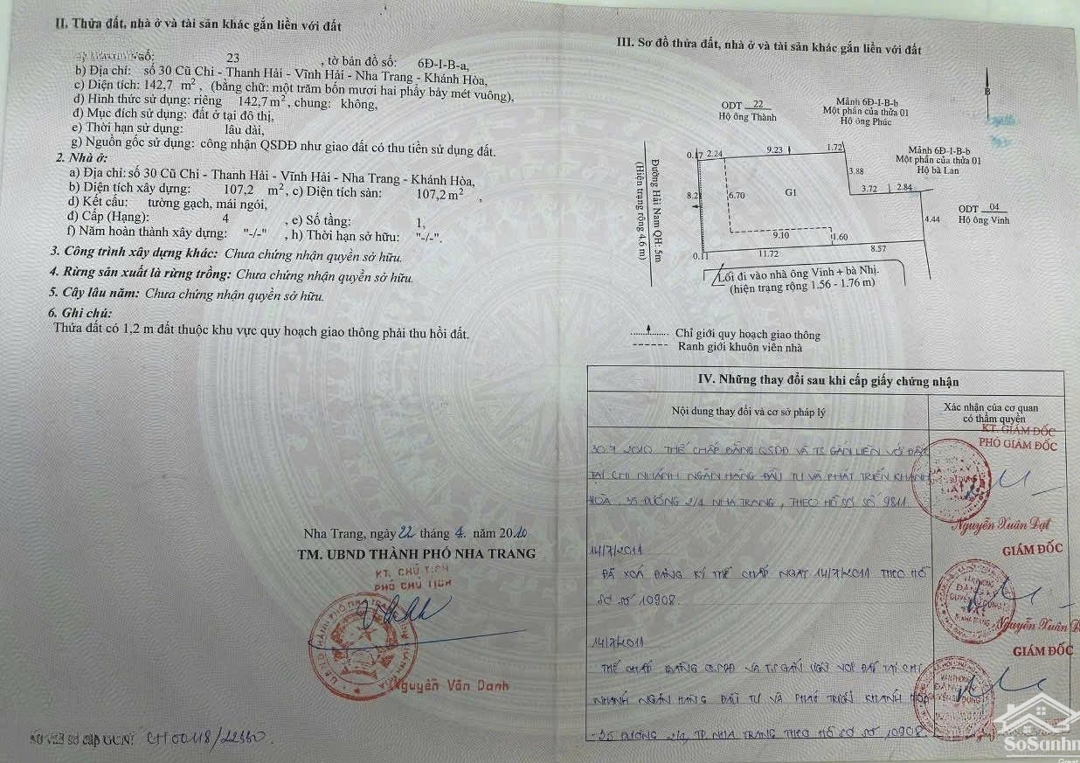 II. Thửa đất, nhà ở và tài sản khác gắn liền với đất
số: 23 , tờ bản đồ số: 6Đ-I-B-a,
b) Địa chỉ: số 30 Cũ Chi - Thanh Hải - Vĩnh Hải - Nha Trang - Khánh Hòa,
c) Diện tích: 142,7 m², (bằng chữ: một trăm bốn mươi hai phẩy bảy mét vuông),
d) Hình thức sử dụng: riêng 142,7 m², chung: không,
đ) Mục đích sử dụng: đất ở tại đô thị,
e) Thời hạn sử dụng: lâu dài,
g) Nguồn gốc sử dụng: công nhận QSDĐ như giao đất có thu tiền sử dụng đất.
2. Nhà ở:
a) Địa chỉ: số 30 Cũ Chi - Thanh Hải - Vĩnh Hải - Nha Trang - Khánh Hòa,
b) Diện tích xây dựng: 107,2 m², c) Diện tích sàn: 107,2 m² ,
d) Kết cấu: tường gạch, mái ngói,
đ) Cấp (Hạng): 4 , e) Số tầng: 1,
f) Năm hoàn thành xây dựng: "-/-" , h) Thời hạn sở hữu: "-/-".
3. Công trình xây dựng khác: Chưa chứng nhận quyền sở hữu.
4. Rừng sản xuất là rừng trồng: Chưa chứng nhận quyền sở hữu.
5. Cây lâu năm: Chưa chứng nhận quyền sở hữu.
6. Ghi chú:
Thửa đất có 1,2 m đất thuộc khu vực quy hoạch giao thông phải thu hồi đất.
Nha Trang, ngày 22 tháng 4 năm 2010
TM. UBND THÀNH PHỐ NHA TRANG
KT. CHỦ TỊCH
PHÓ CHỦ TỊCH
Nguyễn Văn Danh
Số vào sổ cấp GCN: CH00118/22360
III. Sơ đồ thửa đất, nhà ở và tài sản khác gắn liền với đất
B
ODT 22
Hộ ông Thành
Mảnh 6Đ-I-B-b
Một phần của thửa 01
Hộ ông Phúc
Mảnh 6Đ-I-B-b
Một phần của thửa 01
Hộ bà Lan
ODT 04
Hộ ông Vinh
0.17 2.24 9.23 1.72
3.88
3.72 2.84
8.2
6.70
G1
4.44
9.10 1.60
0.11 11.72 8.57
Đường Hải Nam QH: 5m
(Hiện trạng rộng 4.6 m)
Lối đi vào nhà ông Vinh + bà Nhị.
(hiện trạng rộng 1.56 - 1.76 m)
Chỉ giới quy hoạch giao thông
Ranh giới khuôn viên nhà
IV. Những thay đổi sau khi cấp giấy chứng nhận
Nội dung thay đổi và cơ sở pháp lý
Xác nhận của cơ quan
có thẩm quyền
KT. GIÁM ĐỐC
PHÓ GIÁM ĐỐC
30.7.2010 THẾ CHẤP BẰNG QSDĐ VÀ TS GẮN LIỀN VỚI ĐẤT
TẠI CHI NHÁNH NGÂN HÀNG ĐẦU TƯ VÀ PHÁT TRIỂN KHÁNH
HÒA, 35 ĐƯỜNG 2/4 NHA TRANG, THEO HỒ SƠ SỐ 9811
Nguyễn Xuân Đạt
GIÁM ĐỐC
14/7/2011
ĐÃ XOÁ ĐĂNG KÝ THẾ CHẤP NGÀY 14/7/2011 THEO HỒ
SƠ SỐ 10908.
Nguyễn Xuân Đạt
GIÁM ĐỐC
14/7/2011
THẾ CHẤP BẰNG QSDĐ VÀ TS GẮN LIỀN VỚI ĐẤT TẠI CHI
NHÁNH NGÂN HÀNG ĐẦU TƯ VÀ PHÁT TRIỂN KHÁNH HOÀ
- 35 ĐƯỜNG 2/4, TP. NHA TRANG THEO HỒ SƠ SỐ 10908.
SoSanhn